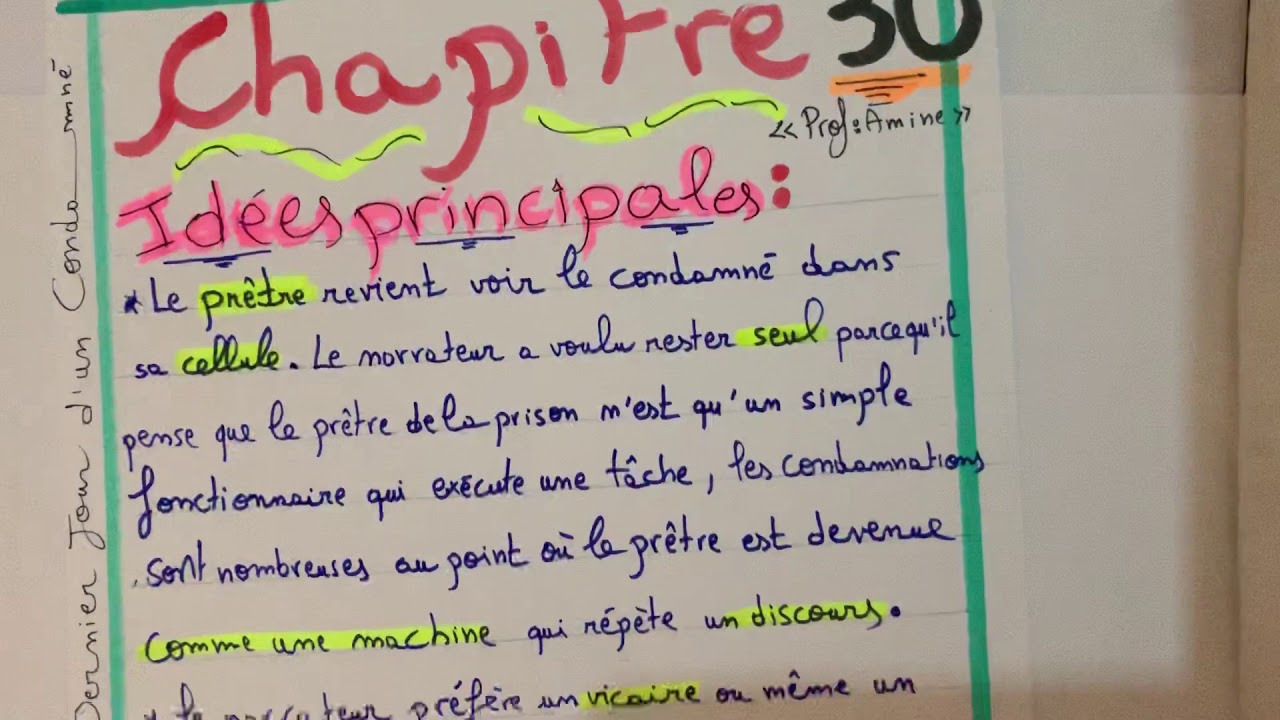 Chapitre 30
« Prof: Amine »
Idées principales:
* Le prêtre revient voir le condamné dans
sa cellule. Le narrateur a voulu rester seul parcequ'il
pense que le prêtre de la prison n'est qu'un simple
fonctionnaire qui exécute une tâche, les condamnations
sont nombreuses au point où le prêtre est devenue
comme une machine qui répète un discours.
* le narrateur préfère un vicaire ou même un
Dernier Jour d'un Condamné